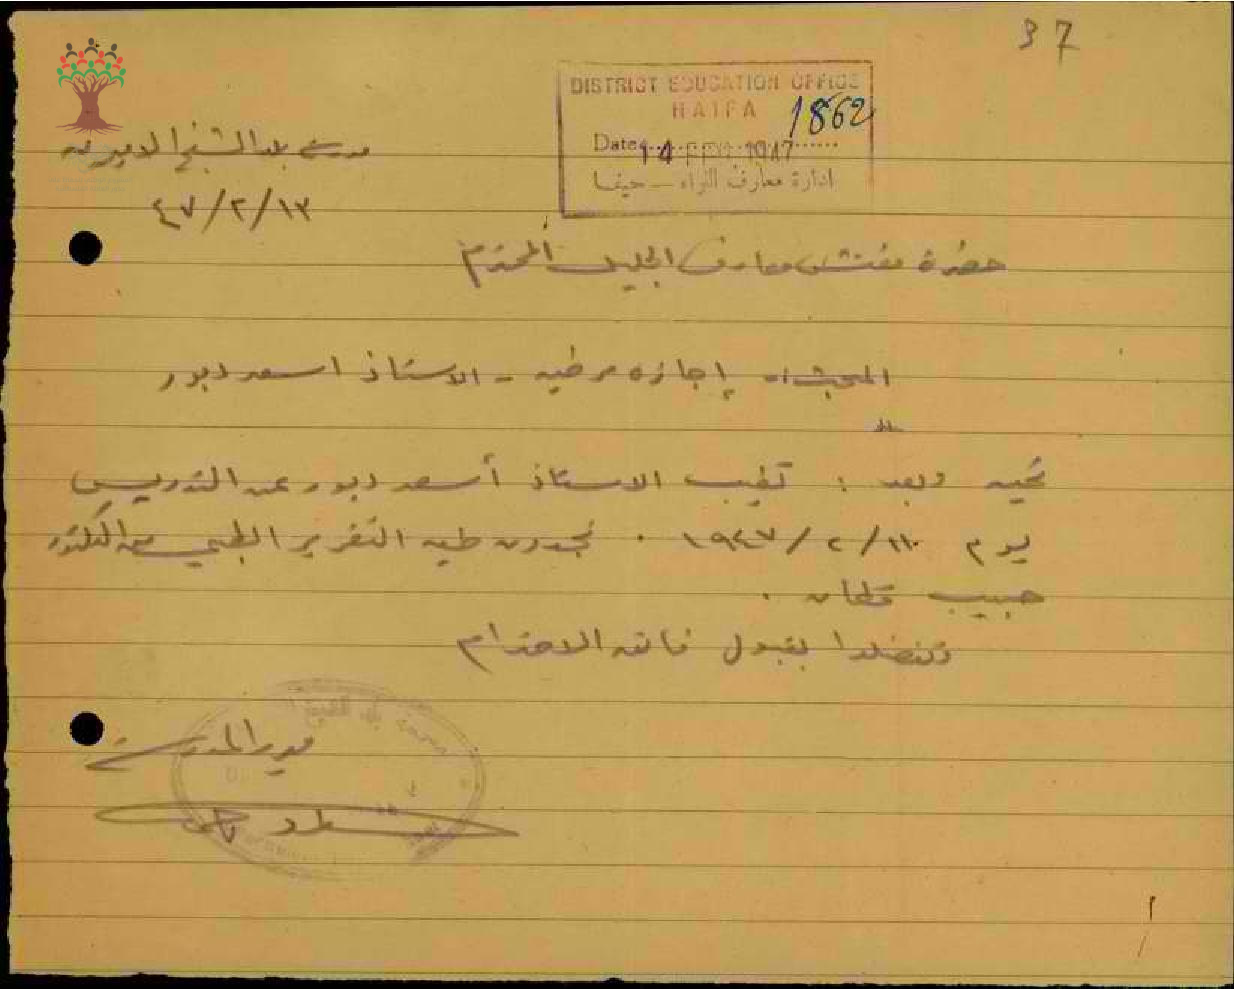 37
DISTRICT EDUCATION OFFICE
HAIFA
1862
Date 14 FEB 1947
ادارة معارف اللواء - حيفا
مدرسة بلد الشيخ الاميرية
١٣/٢/٤٧
حضرة مفتش معارف الجليل المحترم
المبحث :- إجازه مرضيه - الاستاذ اسعد دبور
تحيه وبعد : تغيب الاستاذ أسعد دبور عن التدريس
يوم ١١/٢/١٩٤٧ . تجدون طيه التقرير الطبي من الدكتور
حبيب
وتفضلوا بقبول فائق الاحترام
مدير المدرسة